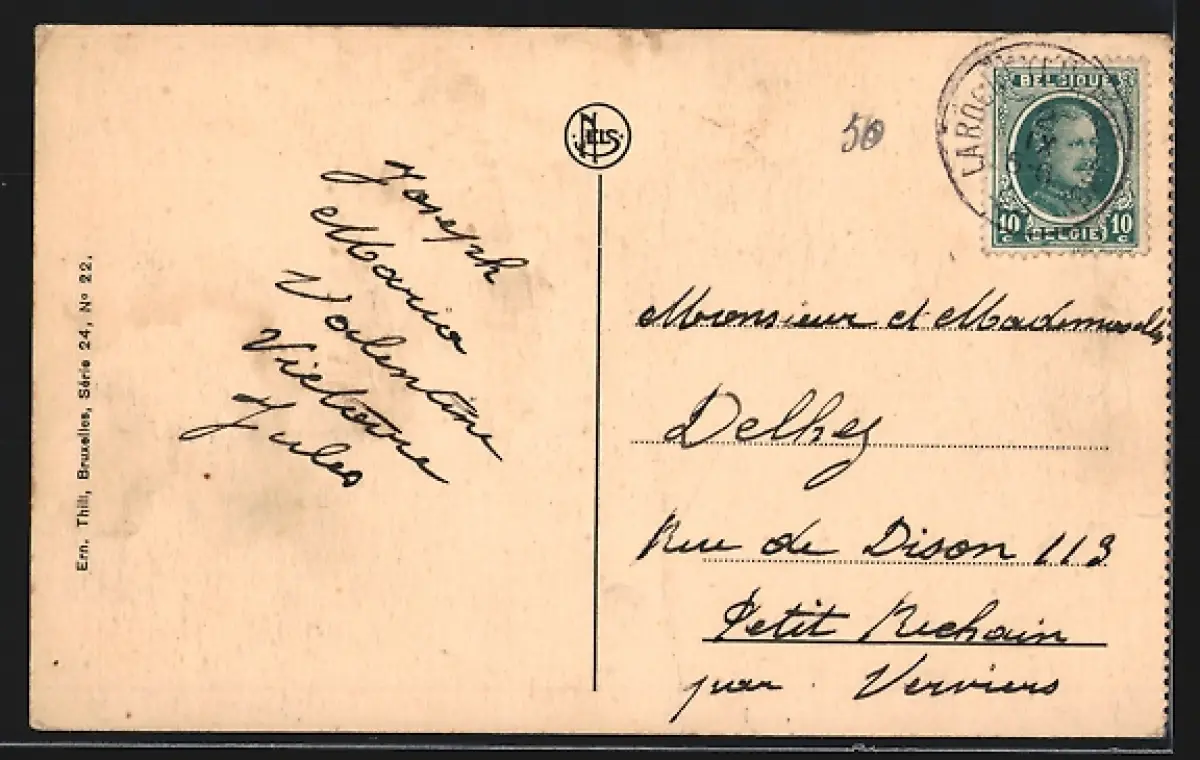 Ern. Thill, Bruxelles, Série 24, Nº 22.
NELS
Joseph
Maria
Valentine
Victoire
Jules
50
BELGIQUE
10 c BELGIE 10 c
Monsieur et Mademoiselle
Delhez
Rue de Dison 113
Petit Rechain
par Verviers